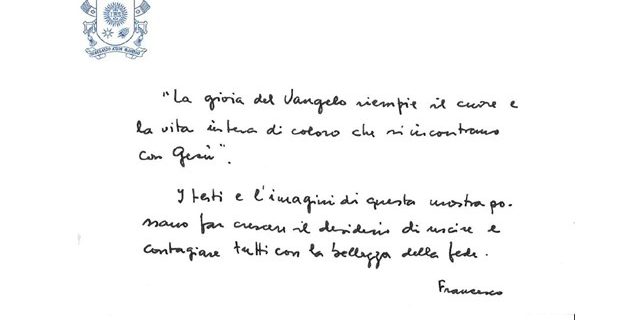 "La gioia del Vangelo riempie il cuore e
la vita intera di coloro che si incontrano
con Gesù".
I testi e l'imagini di questa mostra po-
ssano far crescere il desiderio di uscire e
contagiare tutti con la bellezza della fede.
Francesco